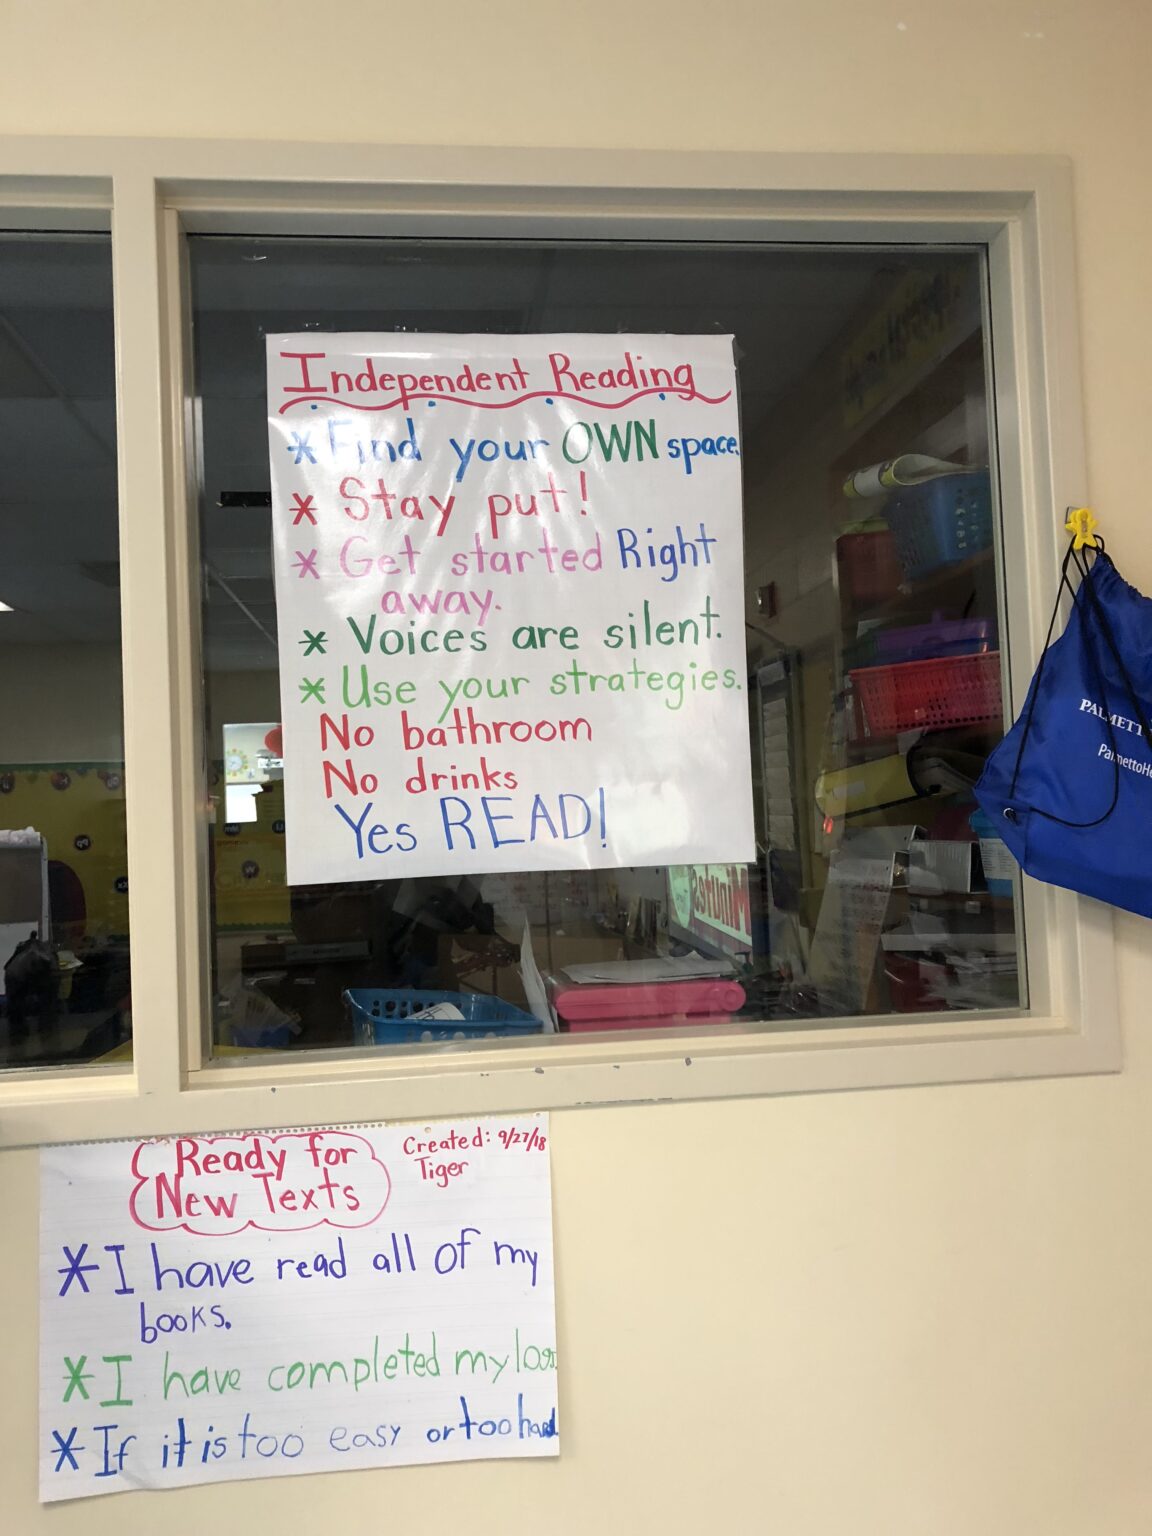 Independent Reading
* Find your OWN space.
* Stay put!
* Get started Right
away.
* Voices are silent.
* Use your strategies.
No bathroom
No drinks
Yes READ!
PALMETT
PalmettoHe
Minutes
Ready for
New Texts
Created: 9/27/18
Tiger
* I have read all of my
books.
* I have completed my log.
* If it is too easy or too hard.